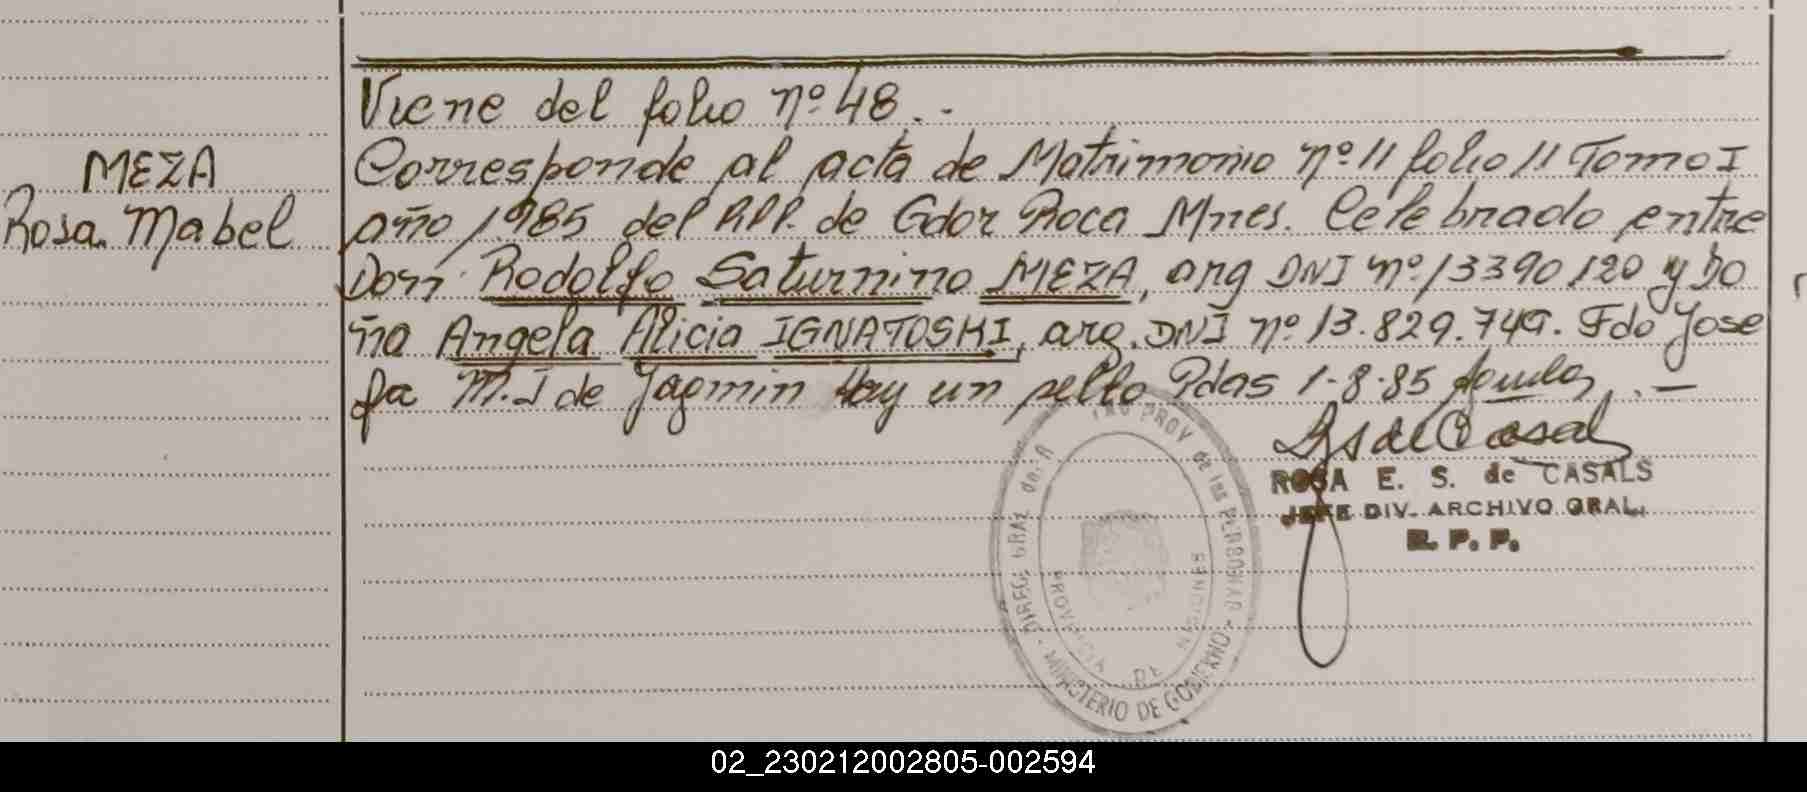 Viene del folio nº 48.-
MEZA
Rosa Mabel
Corresponde al acta de Matrimonio nº 11 folio 11 Tomo I
año 1985 del RPP. de Gdor Roca Mnes. Celebrado entre
Don Rodolfo Saturnino MEZA, arg DNI nº 13390120 y Do
ña Angela Alicia IGNATOSKI, arg. DNI nº 13.829.749. Fdo Jose
fa M. I de Jagmin Hay un sello Pdas 1-8-85
ROSA E. S. de CASALS
JEFE DIV. ARCHIVO GRAL.
R. P. P.
DIREC. GRAL del R PROV de las PERSONAS
MINISTERIO DE GOBIERNO
PROVINCIA DE MISIONES
02_230212002805-002594